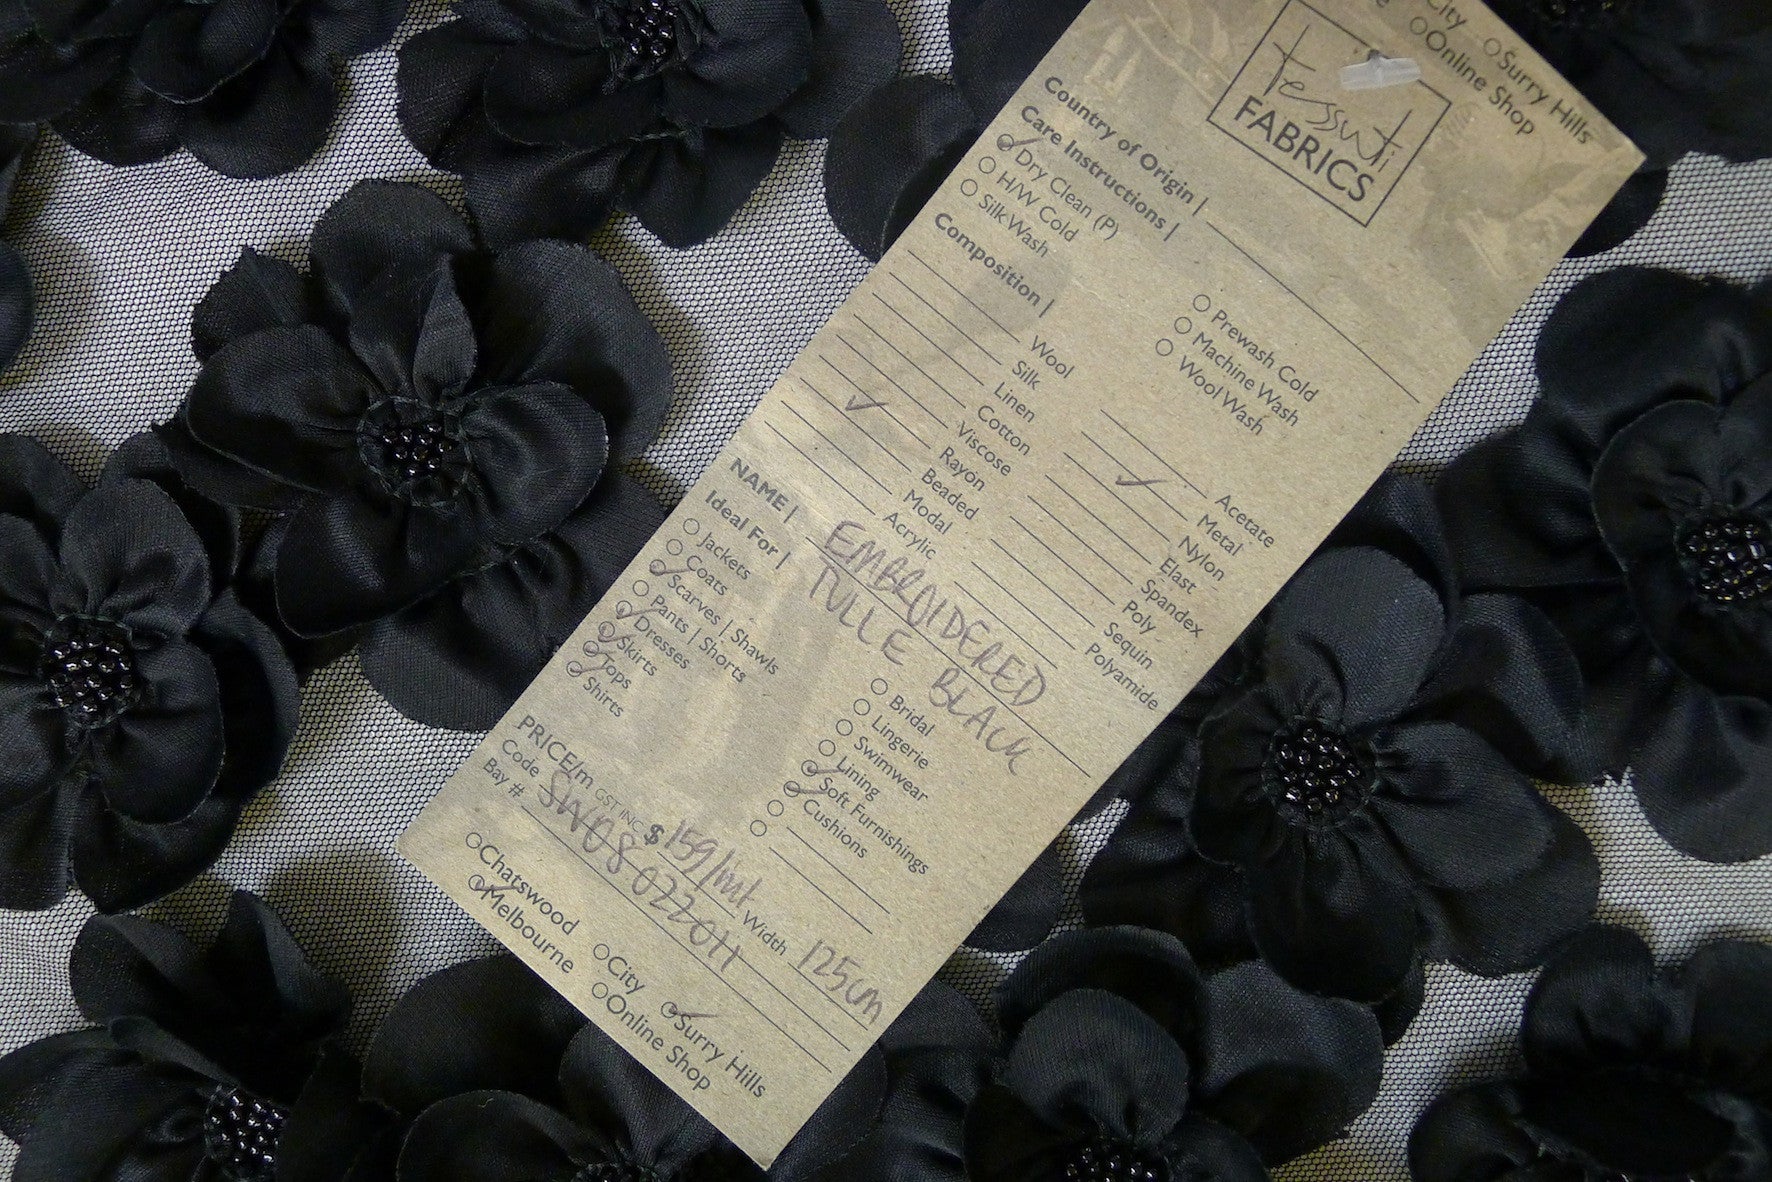 City
Surry Hills
Online Shop
Tessuti
FABRICS
Country of Origin |
Care Instructions |
Dry Clean (P)
H/W Cold
Silk Wash
Prewash Cold
Machine Wash
Wool Wash
Composition |
Wool
Silk
Linen
Cotton
Viscose
Rayon
Beaded
Modal
Acrylic
Acetate
Metal
Nylon
Elast
Spandex
Poly
Sequin
Polyamide
NAME | EMBROIDERED
TULLE BLACK
Ideal For |
Jackets
Coats
Scarves | Shawls
Pants | Shorts
Dresses
Skirts
Tops
Shirts
Bridal
Lingerie
Swimwear
Lining
Soft Furnishings
Cushions
PRICE/m GST INC $ 159/mt Width 125cm
Code SW08022011
Bay #
Chatswood City Surry Hills
Melbourne Online Shop